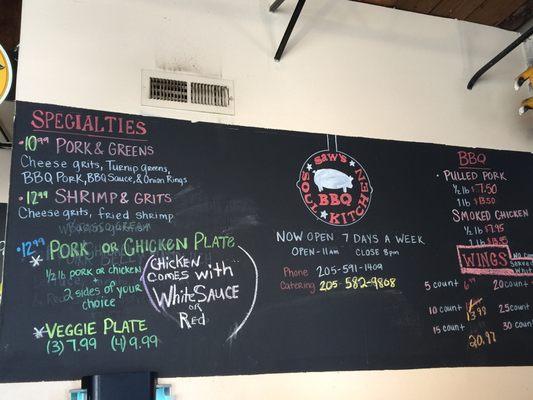 SPECIALTIES
10.99 PORK & GREENS
Cheese grits, Turnip greens,
BBQ Pork, BBQ Sauce, & Onion Rings
12.99 SHRIMP & GRITS
Cheese grits, fried shrimp
12.99 PORK OR CHICKEN PLATE
1/2 lb pork or chicken
+
2 sides of your
choice
CHICKEN
COMES WITH
WHITE SAUCE
OR
RED
VEGGIE PLATE
(3) 7.99 (4) 9.99
SAW'S
BBQ
SOUL KITCHEN
NOW OPEN 7 DAYS A WEEK
OPEN-11am CLOSE 8pm
Phone 205-591-1409
Catering 205-582-9808
BBQ
PULLED PORK
1/2 lb $7.50
1 lb $13.50
SMOKED CHICKEN
1/2 lb $7.95
1 lb
WINGS
NO
SERVED
WHIT
5 count 20 count
10 count 13.99 25 count
15 count 20.97 30 coun